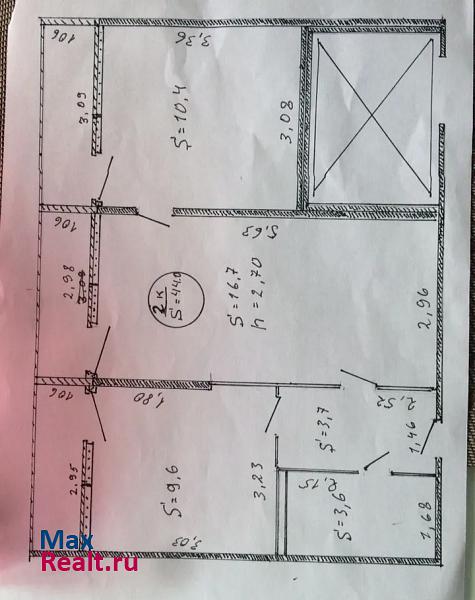 106
3,36
3,09
S=10,4
3,08
106
5,63
2,98
2 к
S=44.0
S=16,7
h=2,70
2,96
106
1,80
2,52
S=3,7
1,46
2,95
3,23
2,15
S=9,6
S=3,6
1,68
3,03
Max
Realt.ru